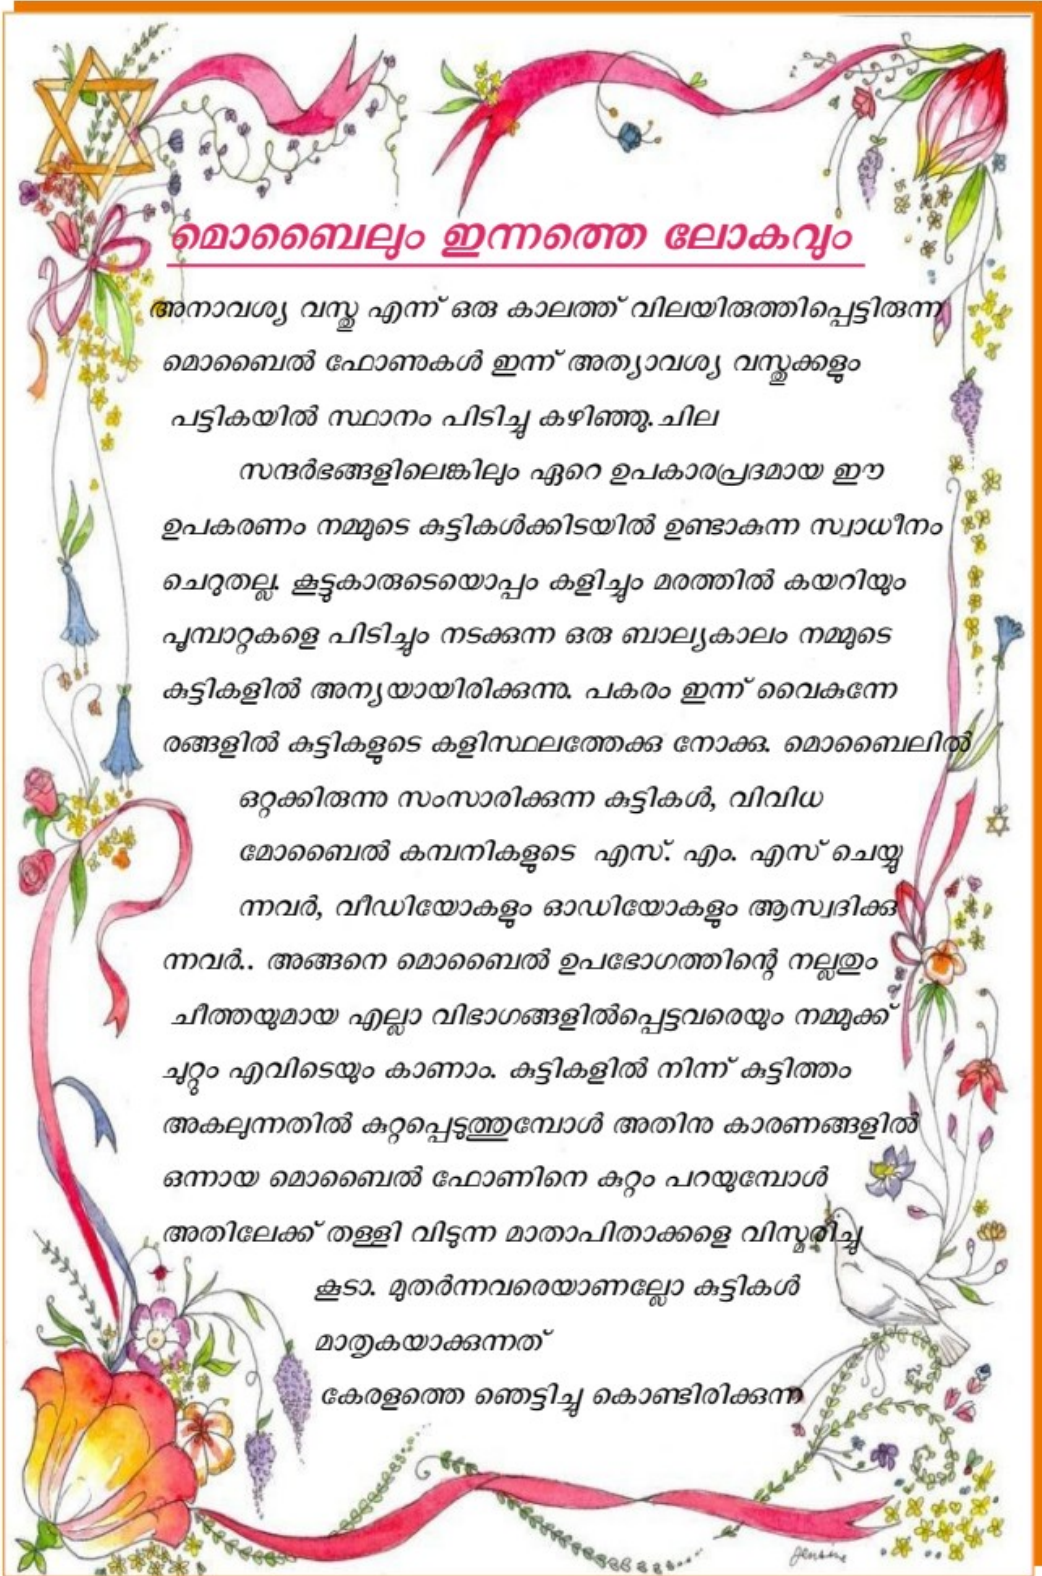 മൊബൈലും ഇന്നത്തെ ലോകവും
അനാവശ്യ വസ്തു എന്ന് ഒരു കാലത്ത് വിലയിരുത്തിപ്പെട്ടിരുന്ന
മൊബൈൽ ഫോണുകൾ ഇന്ന് അത്യാവശ്യ വസ്തുക്കളും
പട്ടികയിൽ സ്ഥാനം പിടിച്ചു കഴിഞ്ഞു. ചില
സന്ദർഭങ്ങളിലെങ്കിലും ഏറെ ഉപകാരപ്രദമായ ഈ
ഉപകരണം നമ്മുടെ കുട്ടികൾക്കിടയിൽ ഉണ്ടാകുന്ന സ്വാധീനം
ചെറുതല്ല. കൂട്ടുകാരുടെയൊപ്പം കളിച്ചും മരത്തിൽ കയറിയും
പൂമ്പാറ്റകളെ പിടിച്ചും നടക്കുന്ന ഒരു ബാല്യകാലം നമ്മുടെ
കുട്ടികളിൽ അന്യയായിരിക്കുന്നു. പകരം ഇന്ന് വൈകുന്നേ
രങ്ങളിൽ കുട്ടികളുടെ കളിസ്ഥലത്തേക്കു നോക്കു. മൊബൈലിൽ
ഒറ്റക്കിരുന്നു സംസാരിക്കുന്ന കുട്ടികൾ, വിവിധ
മോബൈൽ കമ്പനികളുടെ എസ്. എം. എസ് ചെയ്യു
ന്നവർ, വീഡിയോകളും ഓഡിയോകളും ആസ്വദിക്കു
ന്നവർ.. അങ്ങനെ മൊബൈൽ ഉപഭോഗത്തിന്റെ നല്ലതും
ചീത്തയുമായ എല്ലാ വിഭാഗങ്ങളിൽപ്പെട്ടവരെയും നമ്മുക്ക്
ചുറ്റും എവിടെയും കാണാം. കുട്ടികളിൽ നിന്ന് കുട്ടിത്തം
അകലുന്നതിൽ കുറ്റപ്പെടുത്തുമ്പോൾ അതിനു കാരണങ്ങളിൽ
ഒന്നായ മൊബൈൽ ഫോണിനെ കുറ്റം പറയുമ്പോൾ
അതിലേക്ക് തള്ളി വിടുന്ന മാതാപിതാക്കളെ വിസ്മരീച്ചു
കൂടാ. മുതർന്നവരെയാണല്ലോ കുട്ടികൾ
മാതൃകയാക്കുന്നത്
കേരളത്തെ ഞെട്ടിച്ചു കൊണ്ടിരിക്കുന്ന